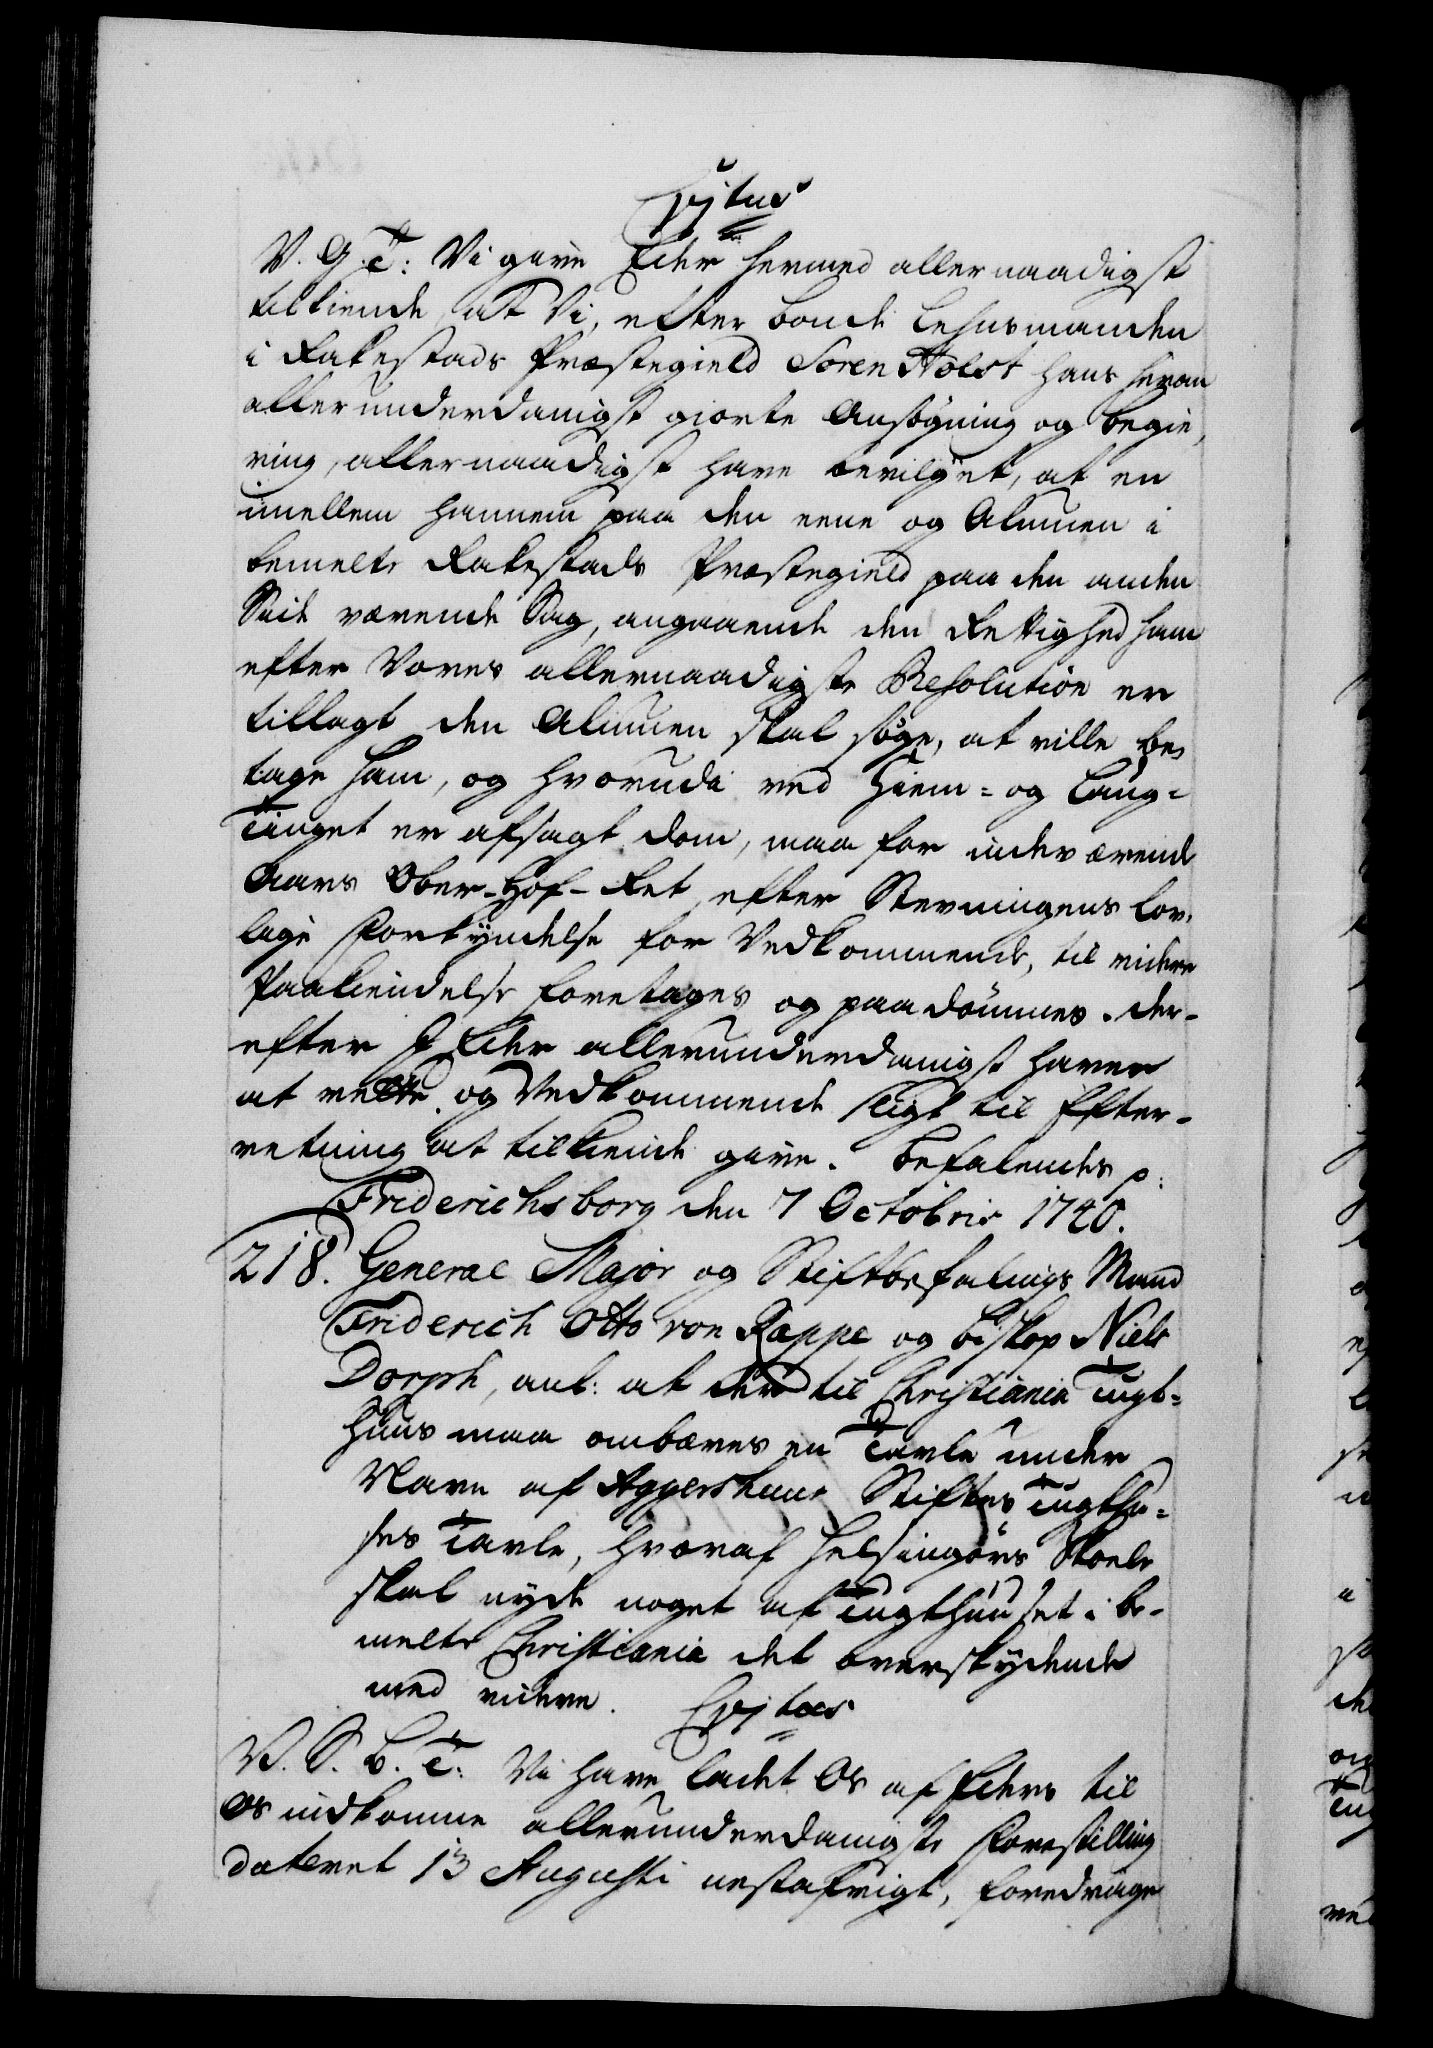 C Vj tus
V. G. T: Vi give Eder hermed allernaadigst
tilkiende, at Vi, efter Bonde Lehnsmanden
i Rakestads Præstegield Soren Holst hans herom
allerunderdanigst giorte Ansögning og begie,
ring, allernaadigst have bevilget, at en
imellem hannem paa den eene og Almuen i
bemelte Rakestads Præstegield paa den anden
Side værende Sag, angaaende den Rettighed ham
efter Vores allernaadigste Resolution er
tillagt, den Almuen skal söge, at ville be,
tage ham, og hvorudi ved Hiem- og Laug-
Tinget er afsagt Dom, maa for indeværende
Aars Ober-Hof-Ret, efter Stevningens lov,
lige Forkyndelse for Vedkommende, til videre
Paakiendelse foretages og paadömmes. Der-
efter I Eder allerunderdanigst haver
at rette, og Vedkommende sligt til Efter-
retning at tilkiende give. Befalendes p:
Friderichsborg den 7 Octobris 1740.
218. General Major og Stiftbefalings Mand
Friderich Otto von Rappe og Biskop Niels
Dorph, anl: at der til Christiania Tugt-
Huus maa ombæres en Tavle under
Navn af Aggershuus Stiftes Tugthu-
ses Tavle, hvoraf Helsingörs Skole
skal nyde noget af Tugthuuset i be-
melte Christiania det overskydende
med videre. C Vj tus
V. S. B. T: Vi have ladet Os af Eders til
Os indkomne allerunderdanigste Forestilling
dateret 13 Augusti nestafvigt, foredrage